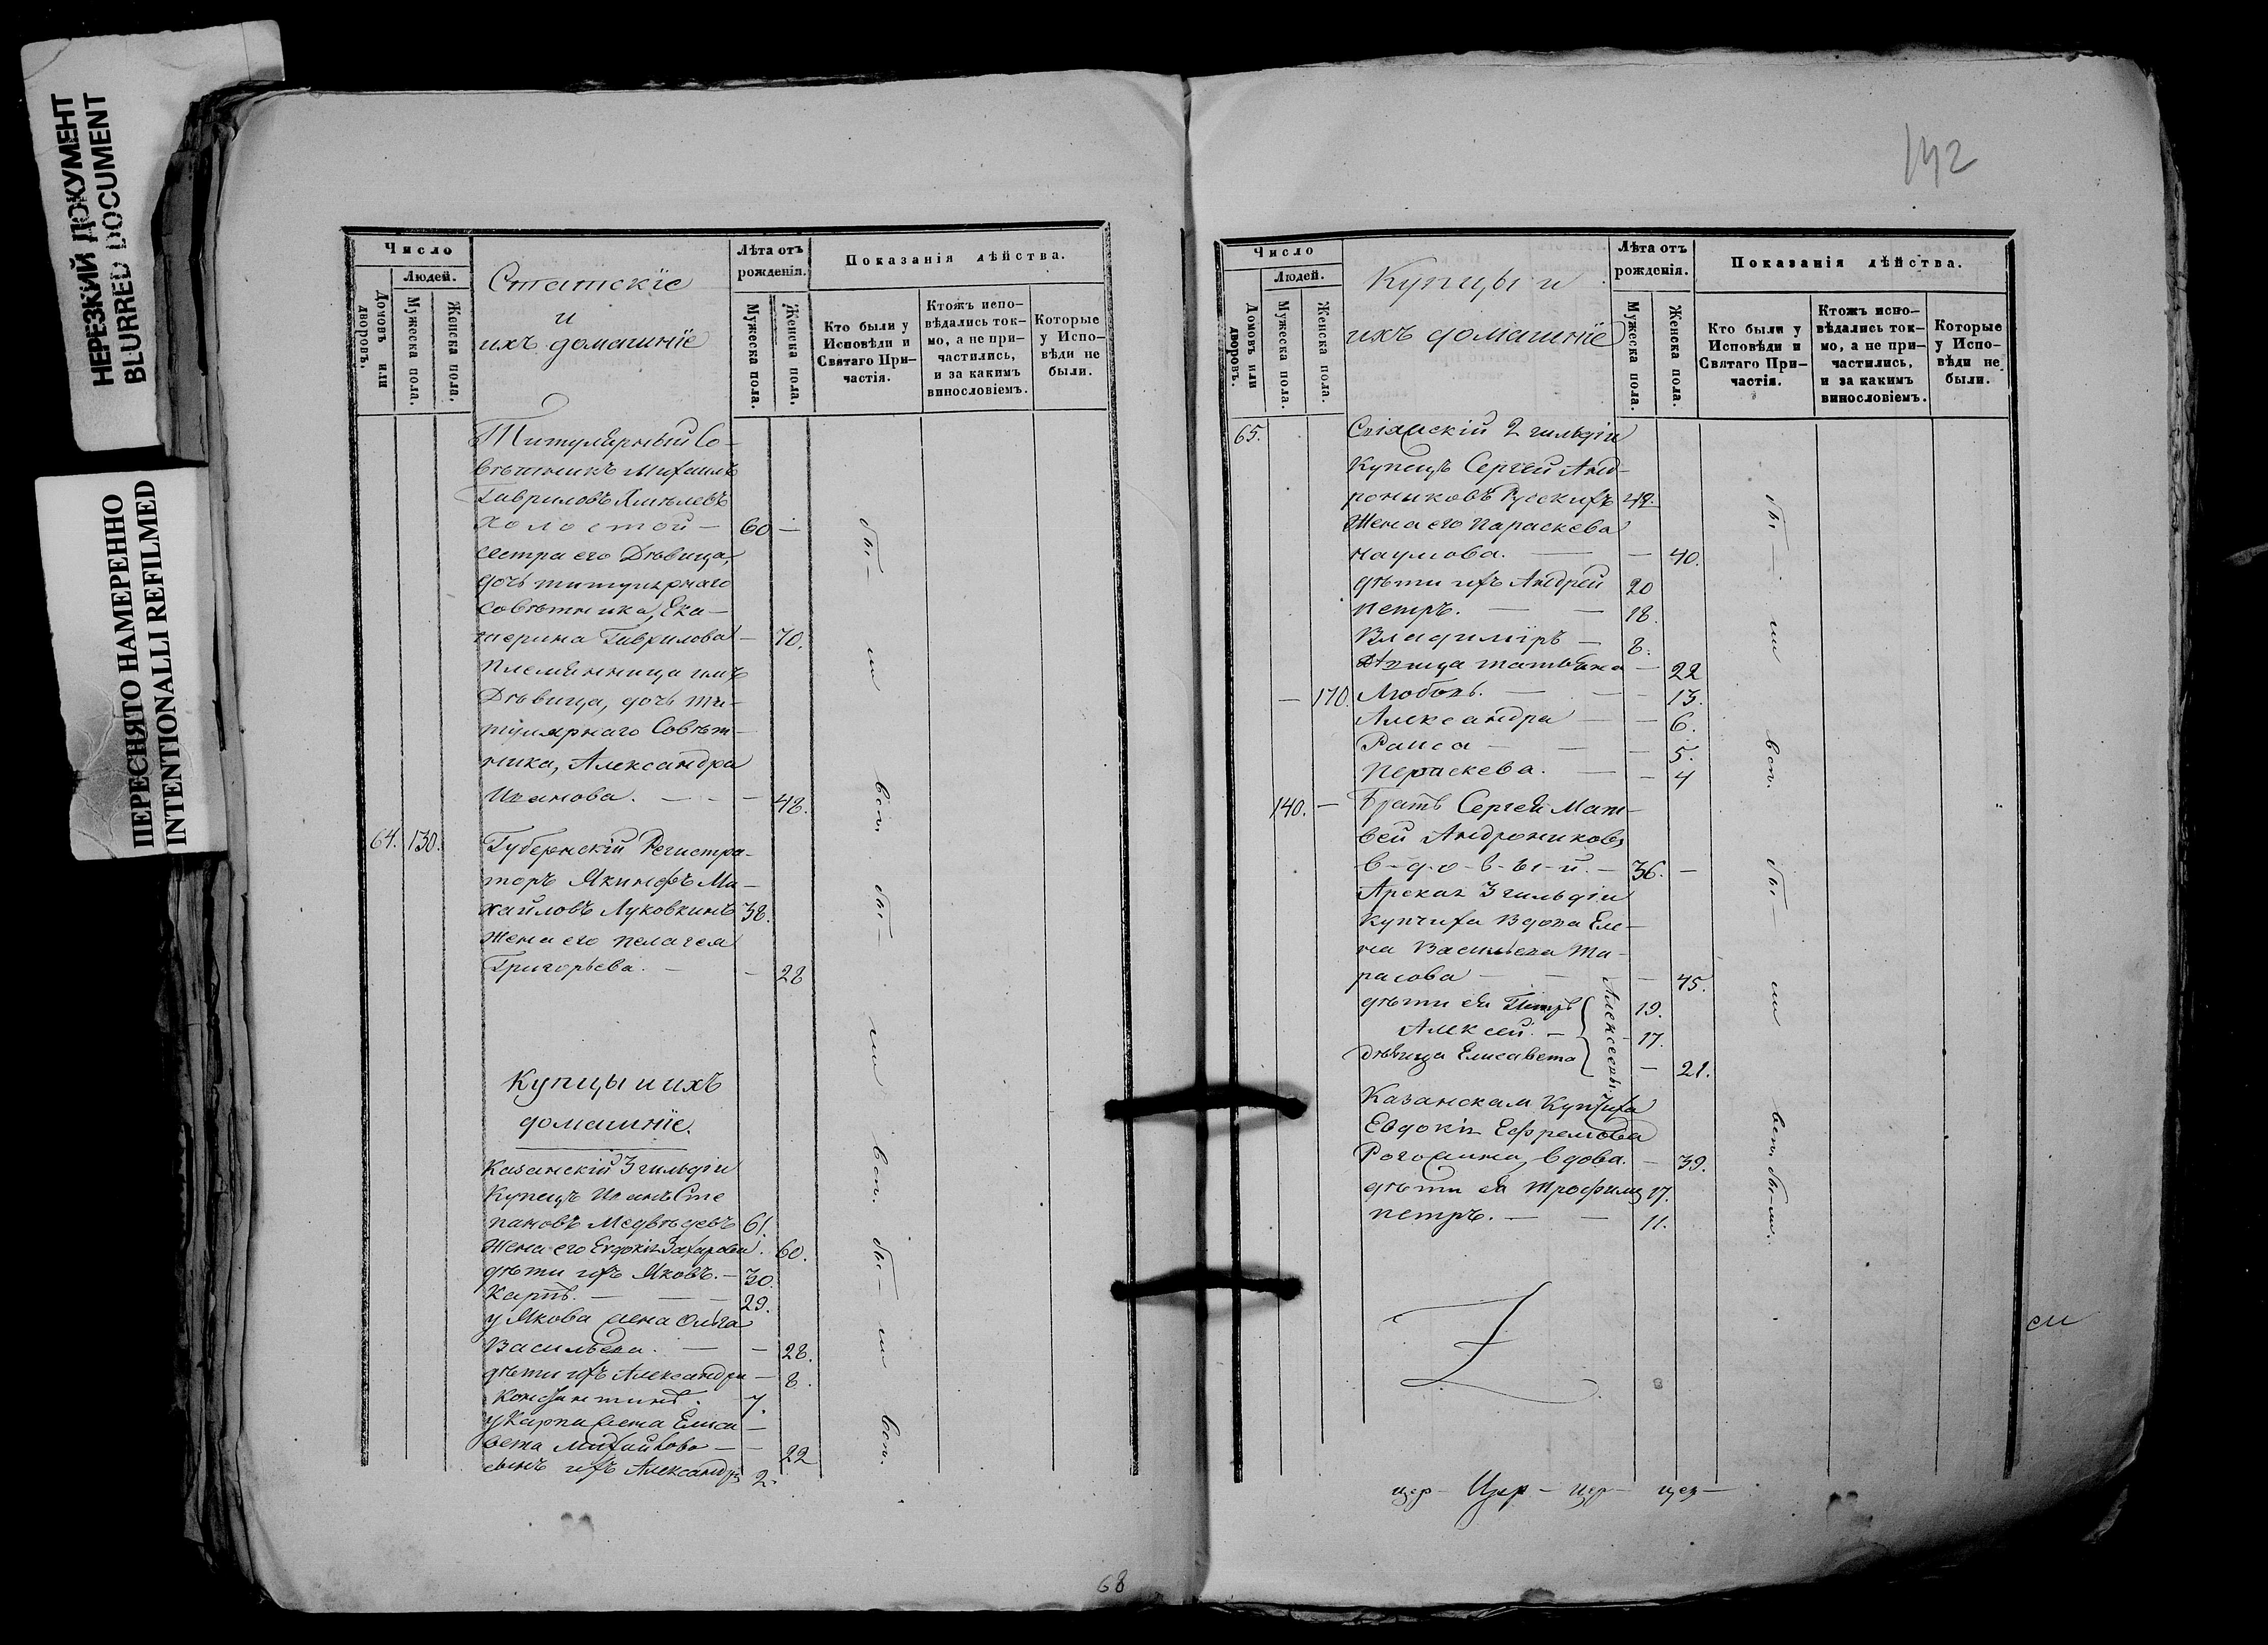 НЕРЕЗКИЙ ДОКУМЕНТ
BLURRED DOCUMENT
ПЕРЕСНЯТО НАМЕРЕННО
INTENTIONALLI REFILMED
Число
Людей.
Домовъ или дворовъ.
Мужеска пола.
Женска пола.
Статскіе
и
ихъ домашніе
Лѣта отъ
рожденія.
Мужеска пола.
Женска пола.
Показанія дѣйства.
Кто были у
Исповѣди и
Святаго При-
частія.
Ктожъ испо-
вѣдались ток-
мо, а не при-
частились,
и за какимъ
винословіемъ.
Которые
у Испо-
вѣди не
были.
Титулярный Со-
вѣтникъ Михаилъ
Гавриловъ Хмѣлевъ
холостой — 60 —
сестра его Дѣвица,
дочь титулярнаго
совѣтника, Ека-
терина Гаврилова — 70.
Племянница ихъ
Дѣвица, дочь ти-
тулярнаго Совѣт-
ника, Александра
Иванова. — — — 48.
64. 130. Губернскій Регистра-
торъ Якинфъ Ми-
хайловъ Луковкинъ 38.
Жена его Пелагея
Григорьева. — — 28
Купцы и ихъ
домашніе.
Казанскій 3 гильдіи
Купецъ Иванъ Сте
пановъ Медвѣдевъ 61.
Жена его Евдокія Захарова. 60.
дѣти ихъ Яковъ. — 30.
Карпъ. — — — 29.
у Якова жена Ольга
Васильева. — — 28.
дѣти ихъ Александра — 8.
Константинъ. 7.
у Карпа жена Елиса —
вета Михайлова — — 22
сынъ ихъ Александръ 2.
бы — ли вси. бы — ли вси. бы — ли вси.
68
142
Число
Людей.
Домовъ или дворовъ.
Мужеска пола.
Женска пола.
Купцы и
ихъ домашніе
Лѣта отъ
рожденія.
Мужеска пола.
Женска пола.
Показанія дѣйства.
Кто были у
Исповѣди и
Святаго При-
частія.
Ктожъ испо-
вѣдались ток-
мо, а не при-
частились,
и за какимъ
винословіемъ.
Которые
у Испо-
вѣди не
были.
65. 2 гильдіи
Купецъ Сергей Анд-
рониковъ Русскихъ 42.
Жена его Параскева
Наумова. — — 40.
дѣти ихъ Андрей 20
Петръ. — — 18.
Владиміръ — 8.
дѣвица Татьяна — 22
— 170. Любовь. — — — 13.
Александра — — 6.
Раиса — — — 5.
Пераскева. — — 4
140. — Братъ Сергея Мат-
вей Андрониковъ
в-д-о-в-ы-й. — 36. —
Арская 3 гильдіи
Купчиха Вдова Еле-
на Васильева Та-
расова — — — 45.
дѣти ея Петръ 19.
Алексей. — 17.
дѣвица Елисавета — 21.
Алексеевы.
Казанская Купчиха
Евдокія Ефремова
Рогожина, вдова. — 39.
дѣти ея Трофимъ 17.
Петръ. — — 11.
бы — ли вси. бы — ли вси, бы-ли.